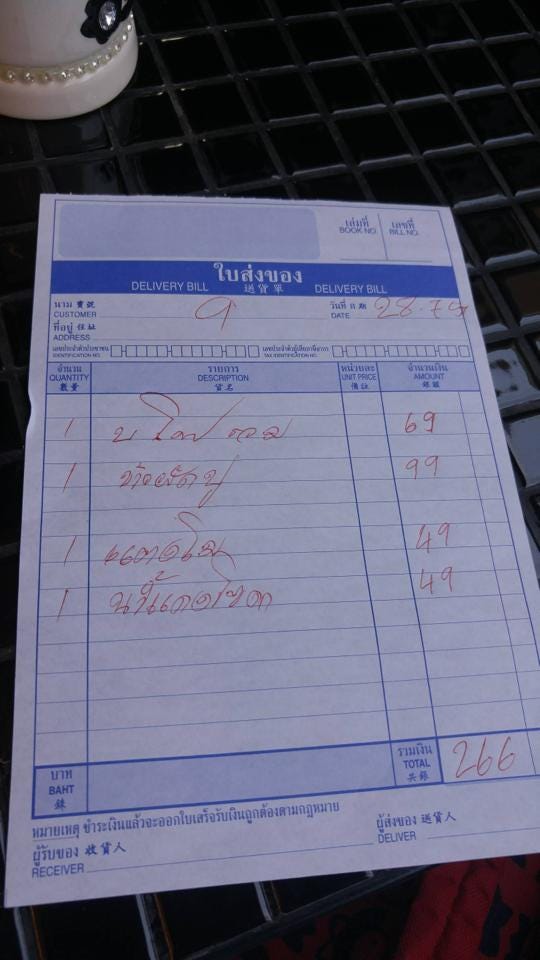 เล่มที่ เลขที่
BOOK NO. BILL NO.
ใบส่งของ
DELIVERY BILL 送貨單 DELIVERY BILL
นาม 寶號 วันที่ 日期
CUSTOMER 9 DATE 28.7.
ที่อยู่ 住址
ADDRESS
เลขประจำตัวประชาชน เลขประจำตัวผู้เสียภาษีอากร
IDENTIFICATION NO. TAX IDENTIFICATION NO.
จำนวน รายการ หน่วยละ จำนวนเงิน
QUANTITY DESCRIPTION UNIT PRICE AMOUNT
數量 貨名 備註 銀額
1 69
1 ข้าวผัดปู 99
1 แตงโม 49
1 49
บาท รวมเงิน
BAHT TOTAL 266
銖 共銀
หมายเหตุ ชำระเงินแล้วจะออกใบเสร็จรับเงินถูกต้องตามกฎหมาย
ผู้รับของ 收貨人 ผู้ส่งของ 送貨人
RECEIVER DELIVER